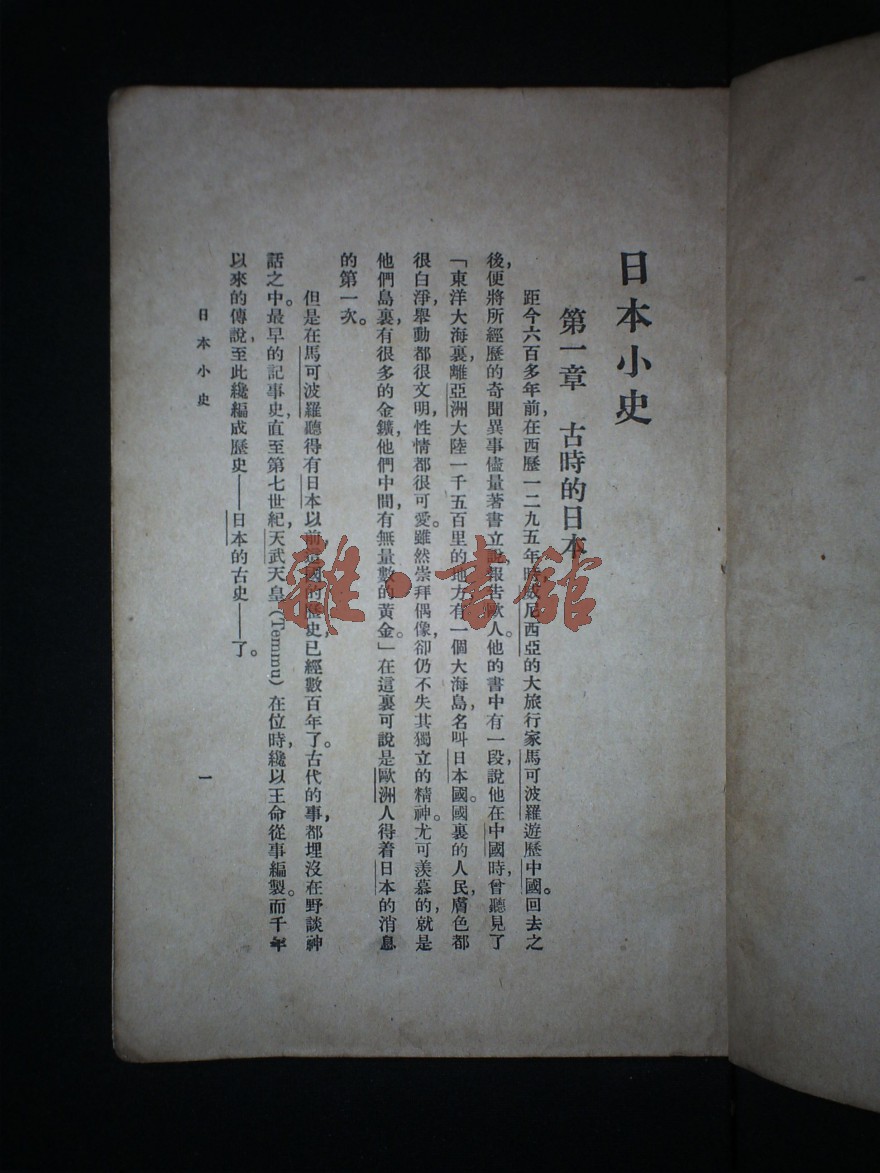 日本小史
第一章 古時的日本
距今六百多年前,在西歷一二九五年時,威尼西亞的大旅行家馬可波羅遊歷中國。回去之
後,便將所經歷的奇聞異事儘量著書立說,報告歐人。他的書中有一段,說他在中國時,曾聽見了
「東洋大海裏,離亞洲大陸一千五百里的地方有一個大海島,名叫日本國。國裏的人民,膚色都
很白淨,舉動都很文明,性情都很可愛。雖然崇拜偶像,卻仍不失其獨立的精神。尤可羨慕的,就是
他們島裏,有很多的金鑛,他們中間,有無量數的黃金。」在這裏可說是歐洲人得着日本的消息
的第一次。
但是在馬可波羅聽得有日本以前,這國的歷史已經數百年了。古代的事,都埋沒在野談神
話之中。最早的記事史,直至第七世紀,天武天皇(Temmu)在位時,纔以王命從事編製。而千年
以來的傳說,至此纔編成歷史——日本的古史——了。
日本小史
一
雜·書館